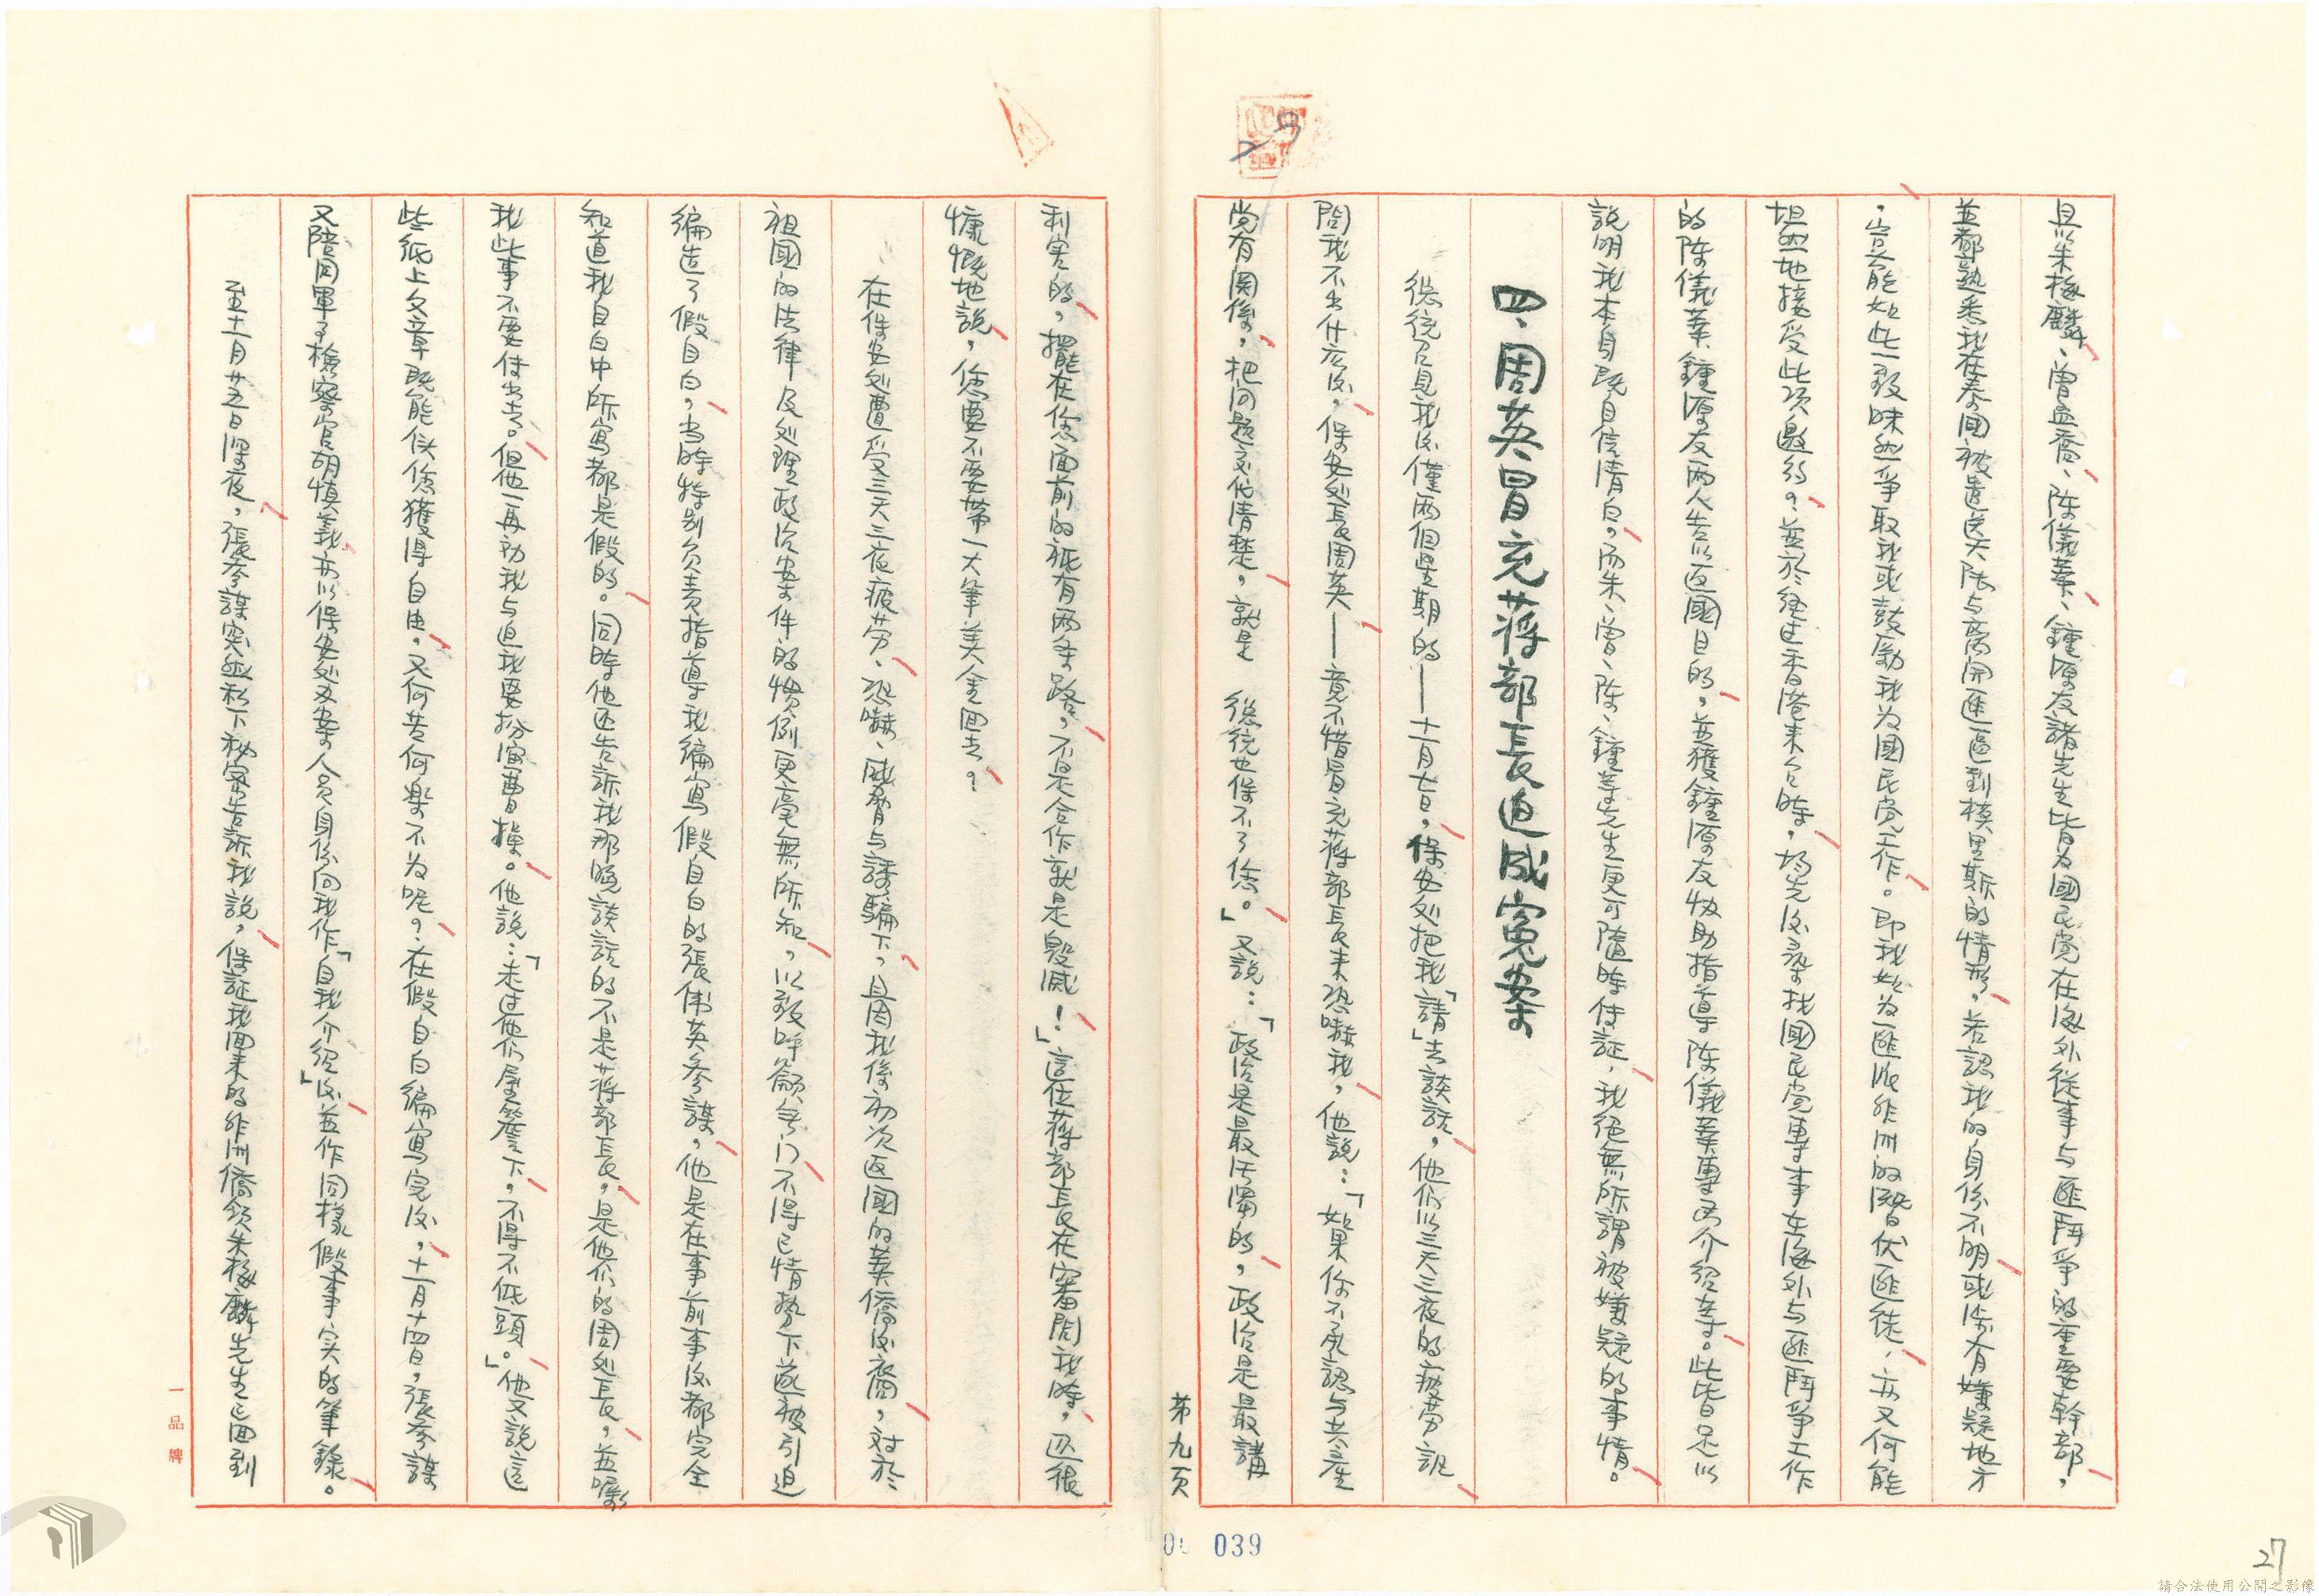 且以朱梅麟、曾孟喬、陳儀葉、鍾源友諸先生皆为國民党在海外從事与匪鬥爭的重要幹部，
並都熟悉我在泰國被遣送大陆与离開匪區到模里斯的情形，若認我的身份不明或涉有嫌疑地方
，豈能如此一致昧然爭取我或鼓勵我为國民党工作。即我如为匪派非洲的潛伏匪徒，亦又何能
坦然地接受此項邀約？並於经过香港来台時，均先後尋找國民党專事在海外与匪鬥爭工作
的陳儀葉、鍾源友两人告以返國目的，並獲鍾源友协助指導、陳儀葉專函介紹等。此皆足以
說明我本身既自信清白。而朱、曾、陳、鍾等先生更可隨時佐証，我絕無所謂被嫌疑的事情。
四、周英冒充蔣部長迫成冤案
總統召見我後僅两個星期的——十一月七日，保安处把我「請」去談話，他们以三天三夜的疲劳訊
問我不出什么後，保安处長周英——竟不惜冒充蔣部長来恐嚇我，他說：「如果你不承認与共產
党有関係，把问題交代清楚，就是 總統也保不了您。」又說：「政治是最污濁的，政治是最講
第九頁
利害的，擺在您面前的祇有两条路，不是合作就是毁滅！」這位蔣部長在審問我時，还很
慷慨地說，您要不要带一大筆美金回去？
在保安处遭受三天三夜疲劳、恐嚇、威脅与誘騙下，且因我係初次返國的華僑後裔，对於
祖國的法律及处理政治案件的慣例更毫無所知，以致呼籲無门不得已情勢下遂被引迫
編造了假自白，当時特别负责指導我編寫假自白的張伟英參謀，他是在事前事後都完全
知道我自白中所寫都是假的。同時他还告訴我那晚談話的不是蔣部長，是他们的周处長，並囑
我此事不要传出去。但他一再劝我与迫我要扮演曹操。他說：「走过他们屋簷下，不得不低頭。」他又說這
些纸上文章既能使您獲得自由，又何苦何樂不为呢？在假自白編寫完後，十一月十四日，張參謀
又陪同軍事檢察官胡慎義亦以保安处办案人員身份向我作「自我介紹」後並作同樣假事実的筆錄。
至十一月廿五日深夜，張參謀突然私下秘密告訴我說，保証我回来的非洲僑領朱梅麟先生已回到
一品牌
039
27
請合法使用公開之影像